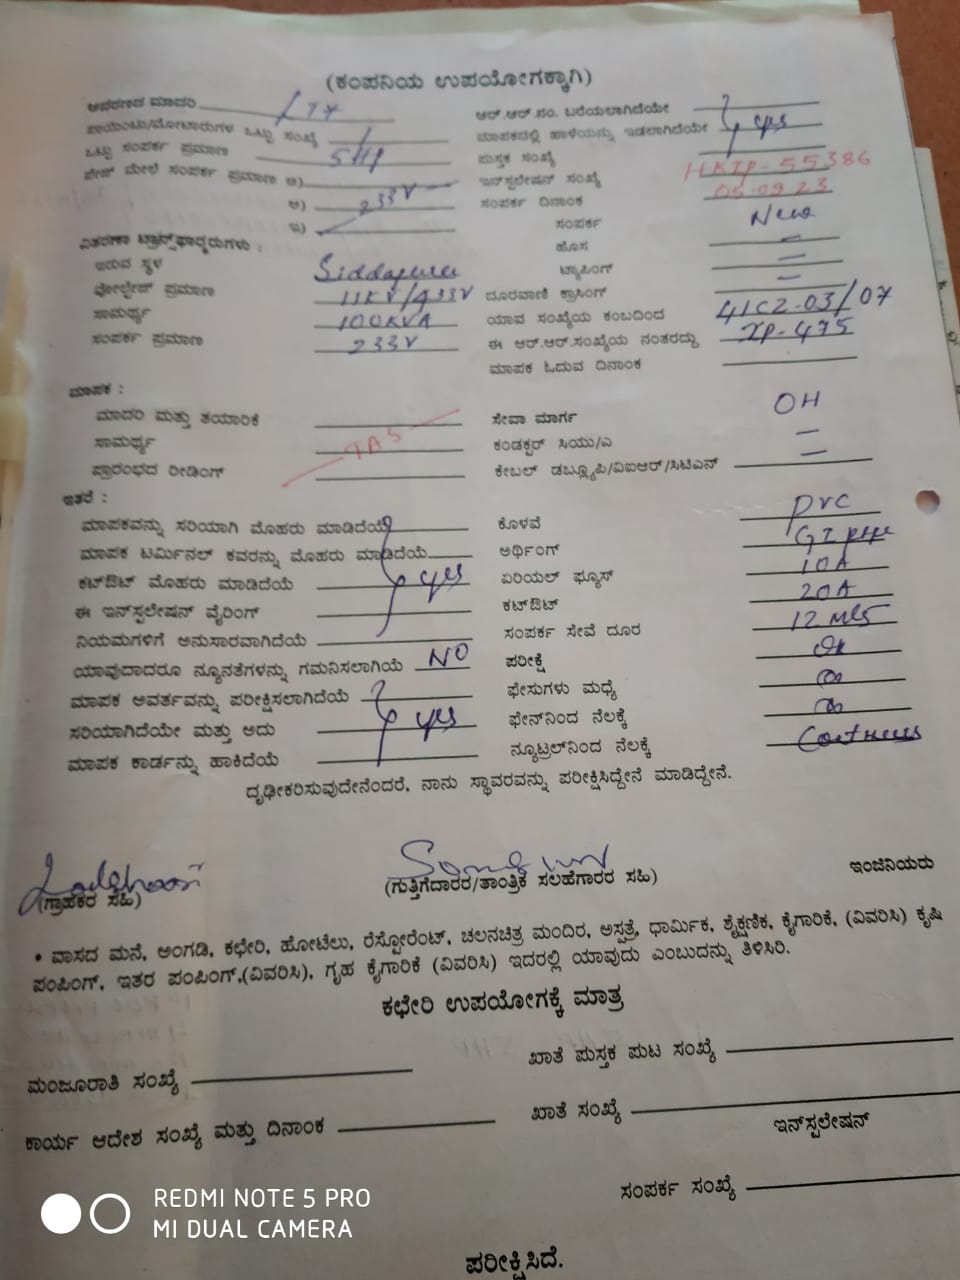 (ಕಂಪನಿಯ ಉಪಯೋಗಕ್ಕಾಗಿ)
ಆವರಣದ ಮಾದರಿ
ಆರ್.ಆರ್.ಸಂ. ಬರೆಯಲಾಗಿದೆಯೇ
ಪಾಯಿಂಟು/ಮೋಟಾರುಗಳ ಒಟ್ಟು ಸಂಖ್ಯೆ
ಮಾಪಕದಲ್ಲಿ ಹಾಳೆಯನ್ನು ಇಡಲಾಗಿದೆಯೇ yes
ಒಟ್ಟು ಸಂಪರ್ಕ ಪ್ರಮಾಣ 5HP
ಪುಸ್ತಕ ಸಂಖ್ಯೆ
ಪೇಜ್ ಮೇಲೆ ಸಂಪರ್ಕ ಪ್ರಮಾಣ ಅ)
ಇನ್‌ಸ್ಪಲೇಷನ್ ಸಂಖ್ಯೆ HKIP-55386
ಆ) 233V
ಸಂಪರ್ಕ ದಿನಾಂಕ 05.09.23
ಇ)
ಸಂಪರ್ಕ New
ವಿತರಣಾ ಟ್ರಾನ್ಸ್‌ಫಾರ್ಮರುಗಳು :
ಹೊಸ –
ಇರುವ ಸ್ಥಳ Siddapura
ಟ್ಯಾಪಿಂಗ್ –
ವೋಲ್ಟೇಜ್ ಪ್ರಮಾಣ 11KV/433V
ದೂರವಾಣಿ ಕ್ರಾಸಿಂಗ್ –
ಸಾಮರ್ಥ್ಯ 100KVA
ಯಾವ ಸಂಖ್ಯೆಯ ಕಂಬದಿಂದ 41CZ-03/07
ಸಂಪರ್ಕ ಪ್ರಮಾಣ 233V
ಈ ಆರ್.ಆರ್.ಸಂಖ್ಯೆಯ ನಂತರದ್ದು IP-475
ಮಾಪಕ ಓದುವ ದಿನಾಂಕ
ಮಾಪಕ :
ಮಾದರಿ ಮತ್ತು ತಯಾರಿಕೆ
ಸೇವಾ ಮಾರ್ಗ OH
ಸಾಮರ್ಥ್ಯ
ಕಂಡಕ್ಟರ್ ಸಿಯು/ಎ –
ಪ್ರಾರಂಭದ ರೀಡಿಂಗ್
ಕೇಬಲ್ ಡಬ್ಲ್ಯೂಪಿ/ವಿಐಆರ್/ಸಿಟಿಎನ್ –
ಇತರೆ :
ಮಾಪಕವನ್ನು ಸರಿಯಾಗಿ ಮೊಹರು ಮಾಡಿದೆಯೆ
ಕೊಳವೆ PVC
ಮಾಪಕ ಟರ್ಮಿನಲ್ ಕವರನ್ನು ಮೊಹರು ಮಾಡಿದೆಯೆ
ಅರ್ಥಿಂಗ್ GI pipe
ಕಟ್‌ಔಟ್ ಮೊಹರು ಮಾಡಿದೆಯೆ yes
ಏರಿಯಲ್ ಫ್ಯೂಸ್ 10A
ಈ ಇನ್‌ಸ್ಪಲೇಷನ್ ವೈರಿಂಗ್
ಕಟ್‌ಔಟ್ 20A
ನಿಯಮಗಳಿಗೆ ಅನುಸಾರವಾಗಿದೆಯೆ
ಸಂಪರ್ಕ ಸೇವೆ ದೂರ 12 Mts
ಯಾವುದಾದರೂ ನ್ಯೂನತೆಗಳನ್ನು ಗಮನಿಸಲಾಗಿಯೆ NO
ಪರೀಕ್ಷೆ
ಮಾಪಕ ಅವರ್ತವನ್ನು ಪರೀಕ್ಷಿಸಲಾಗಿದೆಯೆ
ಫೇಸುಗಳು ಮಧ್ಯೆ
ಸರಿಯಾಗಿದೆಯೇ ಮತ್ತು ಅದು yes
ಫೇನ್‌ನಿಂದ ನೆಲಕ್ಕೆ
ಮಾಪಕ ಕಾರ್ಡನ್ನು ಹಾಕಿದೆಯೆ
ನ್ಯೂಟ್ರಲ್‌ನಿಂದ ನೆಲಕ್ಕೆ
ದೃಢೀಕರಿಸುವುದೇನೆಂದರೆ, ನಾನು ಸ್ಥಾವರವನ್ನು ಪರೀಕ್ಷಿಸಿದ್ದೇನೆ ಮಾಡಿದ್ದೇನೆ.
(ಗ್ರಾಹಕರ ಸಹಿ)
(ಗುತ್ತಿಗೆದಾರರ/ತಾಂತ್ರಿಕ ಸಲಹೆಗಾರರ ಸಹಿ)
ಇಂಜಿನಿಯರು
• ವಾಸದ ಮನೆ, ಅಂಗಡಿ, ಕಛೇರಿ, ಹೋಟೆಲು, ರೆಸ್ಟೋರೆಂಟ್, ಚಲನಚಿತ್ರ ಮಂದಿರ, ಅಸ್ಪತ್ರೆ, ಧಾರ್ಮಿಕ, ಶೈಕ್ಷಣಿಕ, ಕೈಗಾರಿಕೆ, (ವಿವರಿಸಿ) ಕೃಷಿ
ಪಂಪಿಂಗ್, ಇತರ ಪಂಪಿಂಗ್,(ವಿವರಿಸಿ), ಗೃಹ ಕೈಗಾರಿಕೆ (ವಿವರಿಸಿ) ಇದರಲ್ಲಿ ಯಾವುದು ಎಂಬುದನ್ನು ತಿಳಿಸಿರಿ.
ಕಛೇರಿ ಉಪಯೋಗಕ್ಕೆ ಮಾತ್ರ
ಮಂಜೂರಾತಿ ಸಂಖ್ಯೆ
ಖಾತೆ ಪುಸ್ತಕ ಪುಟ ಸಂಖ್ಯೆ
ಕಾರ್ಯ ಆದೇಶ ಸಂಖ್ಯೆ ಮತ್ತು ದಿನಾಂಕ
ಖಾತೆ ಸಂಖ್ಯೆ
ಇನ್‌ಸ್ಪಲೇಷನ್
ಸಂಪರ್ಕ ಸಂಖ್ಯೆ
REDMI NOTE 5 PRO
MI DUAL CAMERA
ಪರೀಕ್ಷಿಸಿದೆ.